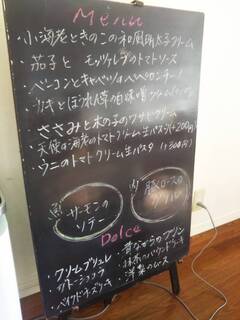 Menu
・小海老ときのこの和風明太子クリーム
・茄子とモッツァレラのトマトソース
・ベーコンとキャベツのペペロンチーノ
・カキとほうれん草の白味噌クリーム
・ささみと木の子のワサビクリーム
・天使の海老のトマトクリーム生パスタ(+200円)
・ウニのトマトクリーム生パスタ(+300円)
魚 サーモンのソテー
肉 豚ロースのグリル
Dolce
・クリームブリュレ
・ガトーショコラ
・ベイクドチーズケーキ
・昔ながらのプリン
・抹茶のパウンドケーキ
・洋梨のムース